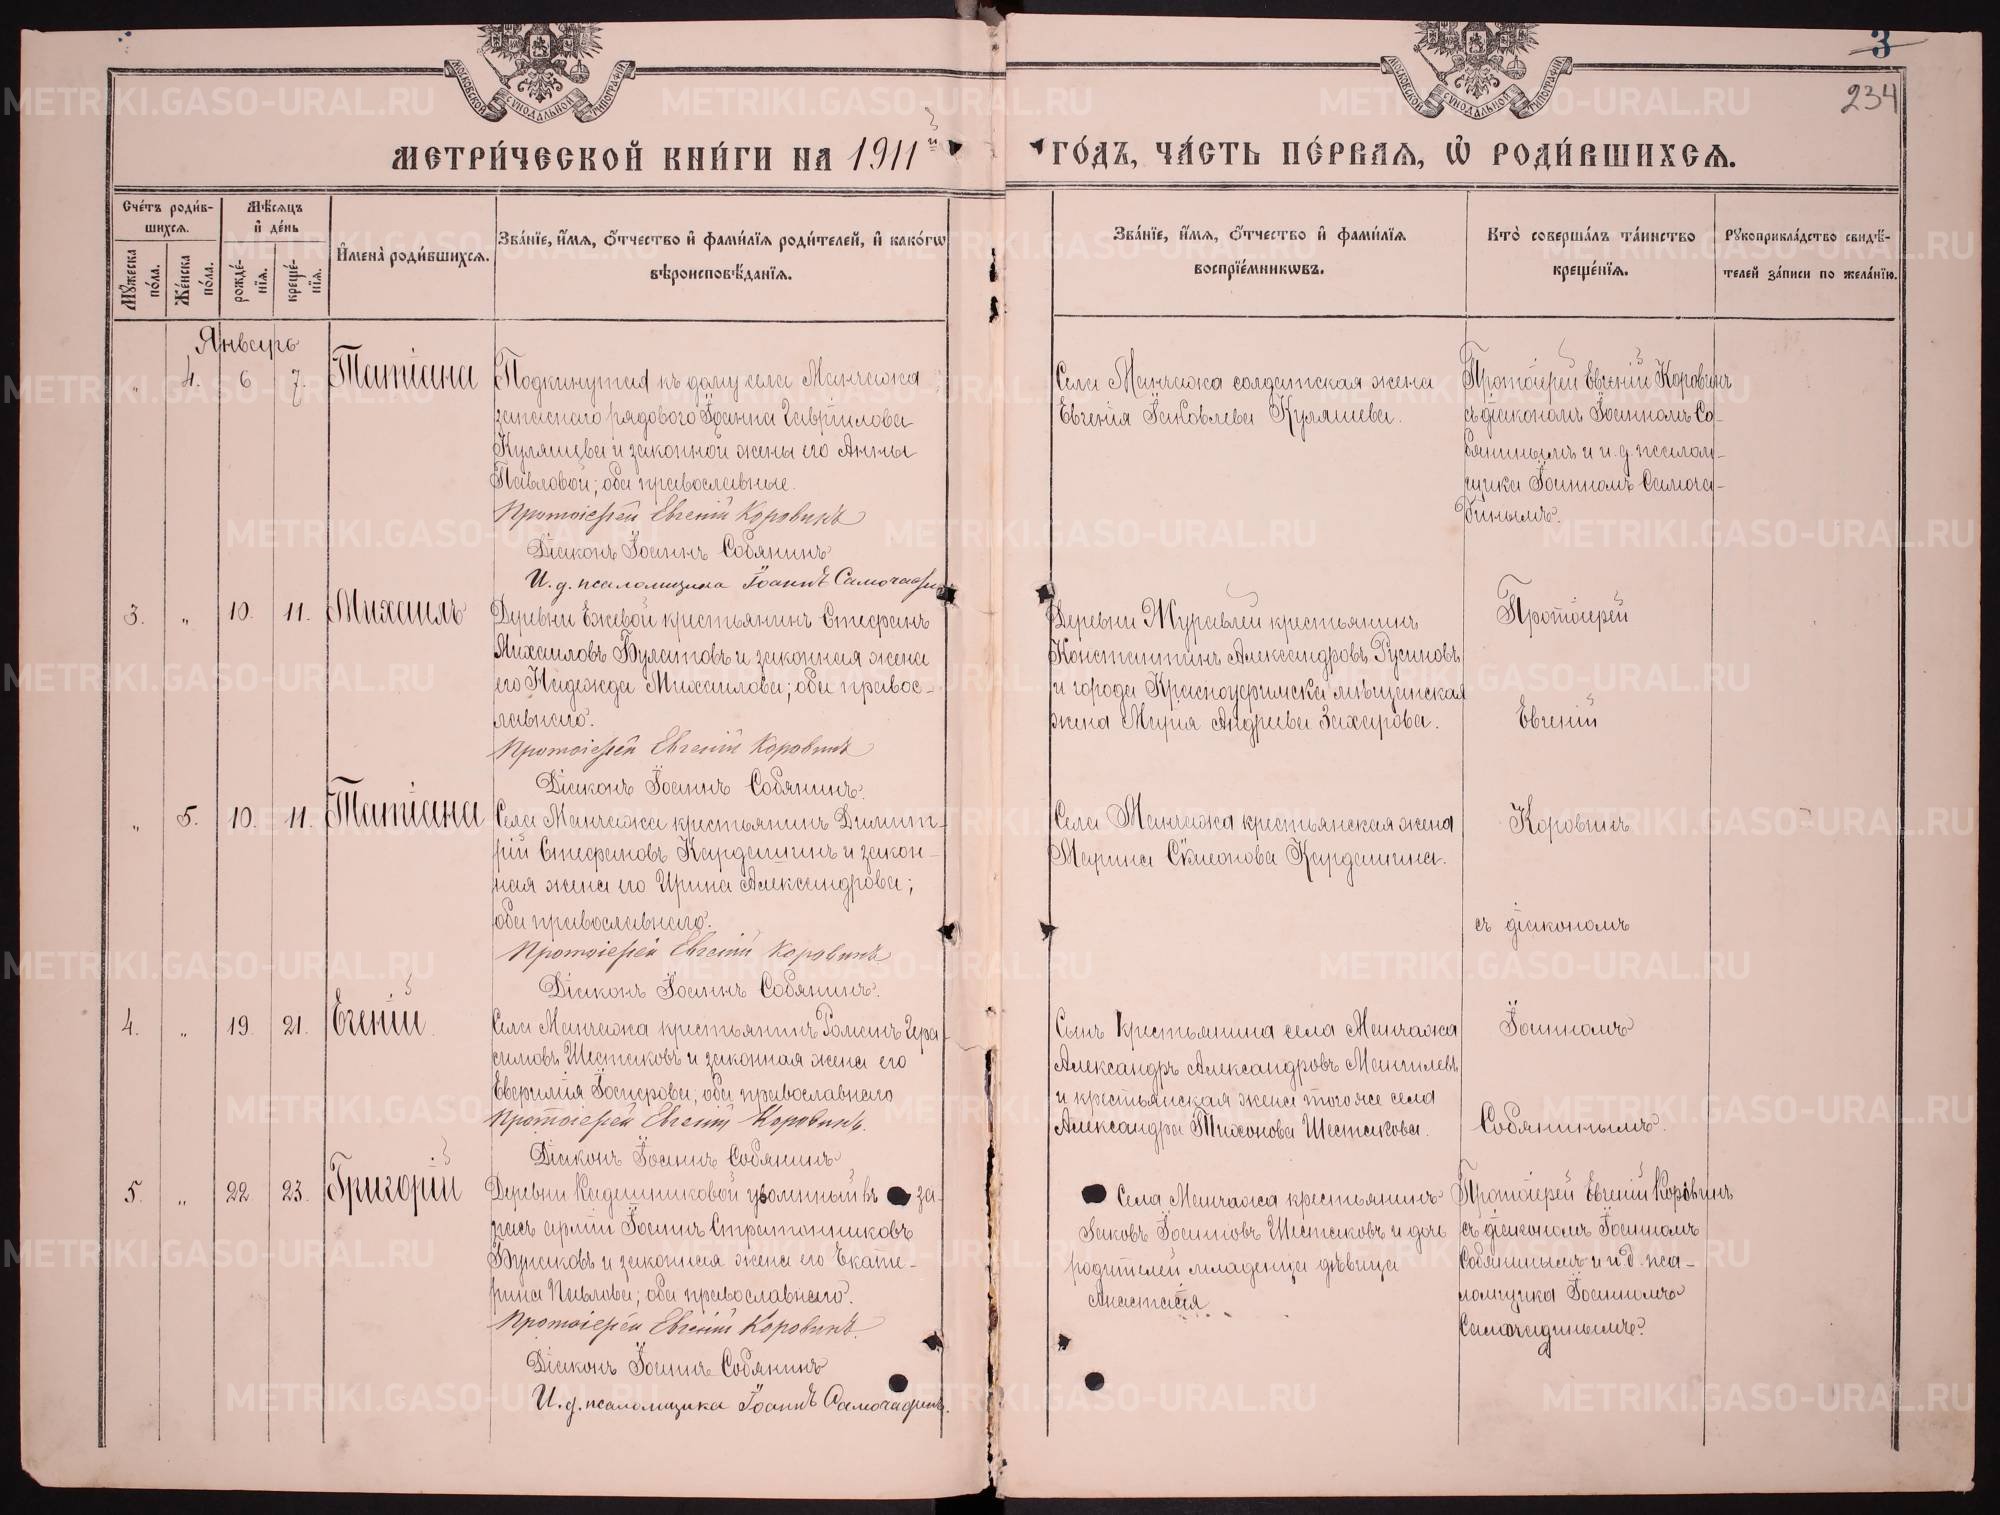 МОСКОВСКОЙ СѴНОДАЛЬНОЙ ТИПОГРАФІИ
МОСКОВСКОЙ СѴНОДАЛЬНОЙ ТИПОГРАФІИ
3
234
МЕТРИ́ЧЕСКОЙ КНИ́ГИ НА 1911й
ГО́ДЪ, ЧА́СТЬ ПЕ́РВАЯ, Ѡ РОДИ́ВШИХСЯ.
Счетъ родив-
шихся.
Мѣсяцъ
и день
Мужеска
пола.
Женска
пола.
рожде-
нія.
креще-
нія.
Имена родившихся.
Званіе, имя, отчество и фамилія родителей, и какогѡ
вѣроисповѣданія.
Званіе, имя, отчество и фамилія
воспріемникѡвъ.
Кто совершалъ таинство
крещенія.
Рукоприкладство свидѣ-
телей записи по желанію.
Январь
" 4. 6 7. Татіана
Подкинутая къ дому села Манчажа
запаснаго рядового Іоанна Гавріилова
Куляшева и законной жены его Анны
Павловой; оба православные.
Протоіерей Евгеній Коровинъ
Діаконъ Іоаннъ Собянинъ
И. д. псаломщика Іоаннъ
Села Манчажа солдатская жена
Евгенія Іаковлева Куляшева.
Протоіерей Евгеній Коровинъ
съ діакономъ Іоанномъ Со-
бянинымъ и и. д. псалом-
щика Іоанномъ
3. " 10. 11. Михаилъ
Деревни Ежевой крестьянинъ Стефанъ
Михаиловъ Булатовъ и законная жена
его Надежда Михаилова; оба правос-
лавнаго.
Протоіерей Евгеній Коровинъ
Діаконъ Іоаннъ Собянинъ.
Деревни Журавлей крестьянинъ
Константинъ Александровъ Русиновъ
и города Красноуфимска мѣщанская
жена Марія Андреева Захарова.
Протоіерей
Евгеній
" 5. 10. 11. Татіана
Села Манчажа крестьянинъ Димит-
рій Стефановъ Кардашинъ и закон-
ная жена его Ирина Александрова;
оба православнаго.
Протоіерей Евгеній Коровинъ
Діаконъ Іоаннъ Собянинъ.
Села Манчажа крестьянская жена
Марина Сѵмеонова Кардашина.
Коровинъ
съ діакономъ
4. " 19. 21. Евгеній
Села Манчажа крестьянинъ Романъ Гера-
симовъ Шестаковъ и законная жена его
Евфимія Іосифова; оба православнаго
Протоіерей Евгеній Коровинъ.
Діаконъ Іоаннъ Собянинъ
Сынъ крестьянина села Манчажа
Александръ Александровъ
и крестьянская жена того же села
Александра Тихонова Шестакова.
Іоанномъ
Собянинымъ.
5. " 22. 23. Григорій
Деревни Кадешниковой уволенный въ за-
пасъ арміи Іоаннъ Стратониковъ
и законная жена его Екате-
рина Павлова; оба православнаго.
Протоіерей Евгеній Коровинъ.
Діаконъ Іоаннъ Собянинъ
И. д. псаломщика Іоаннъ
Села Манчажа крестьянинъ
Іаковъ Іоанновъ Шестаковъ и дочь
родителей младенца дѣвица
Анастасія
Протоіерей Евгеній Коровинъ
съ діакономъ Іоанномъ
Собянинымъ и и. д. пса-
ломщика Іоанномъ